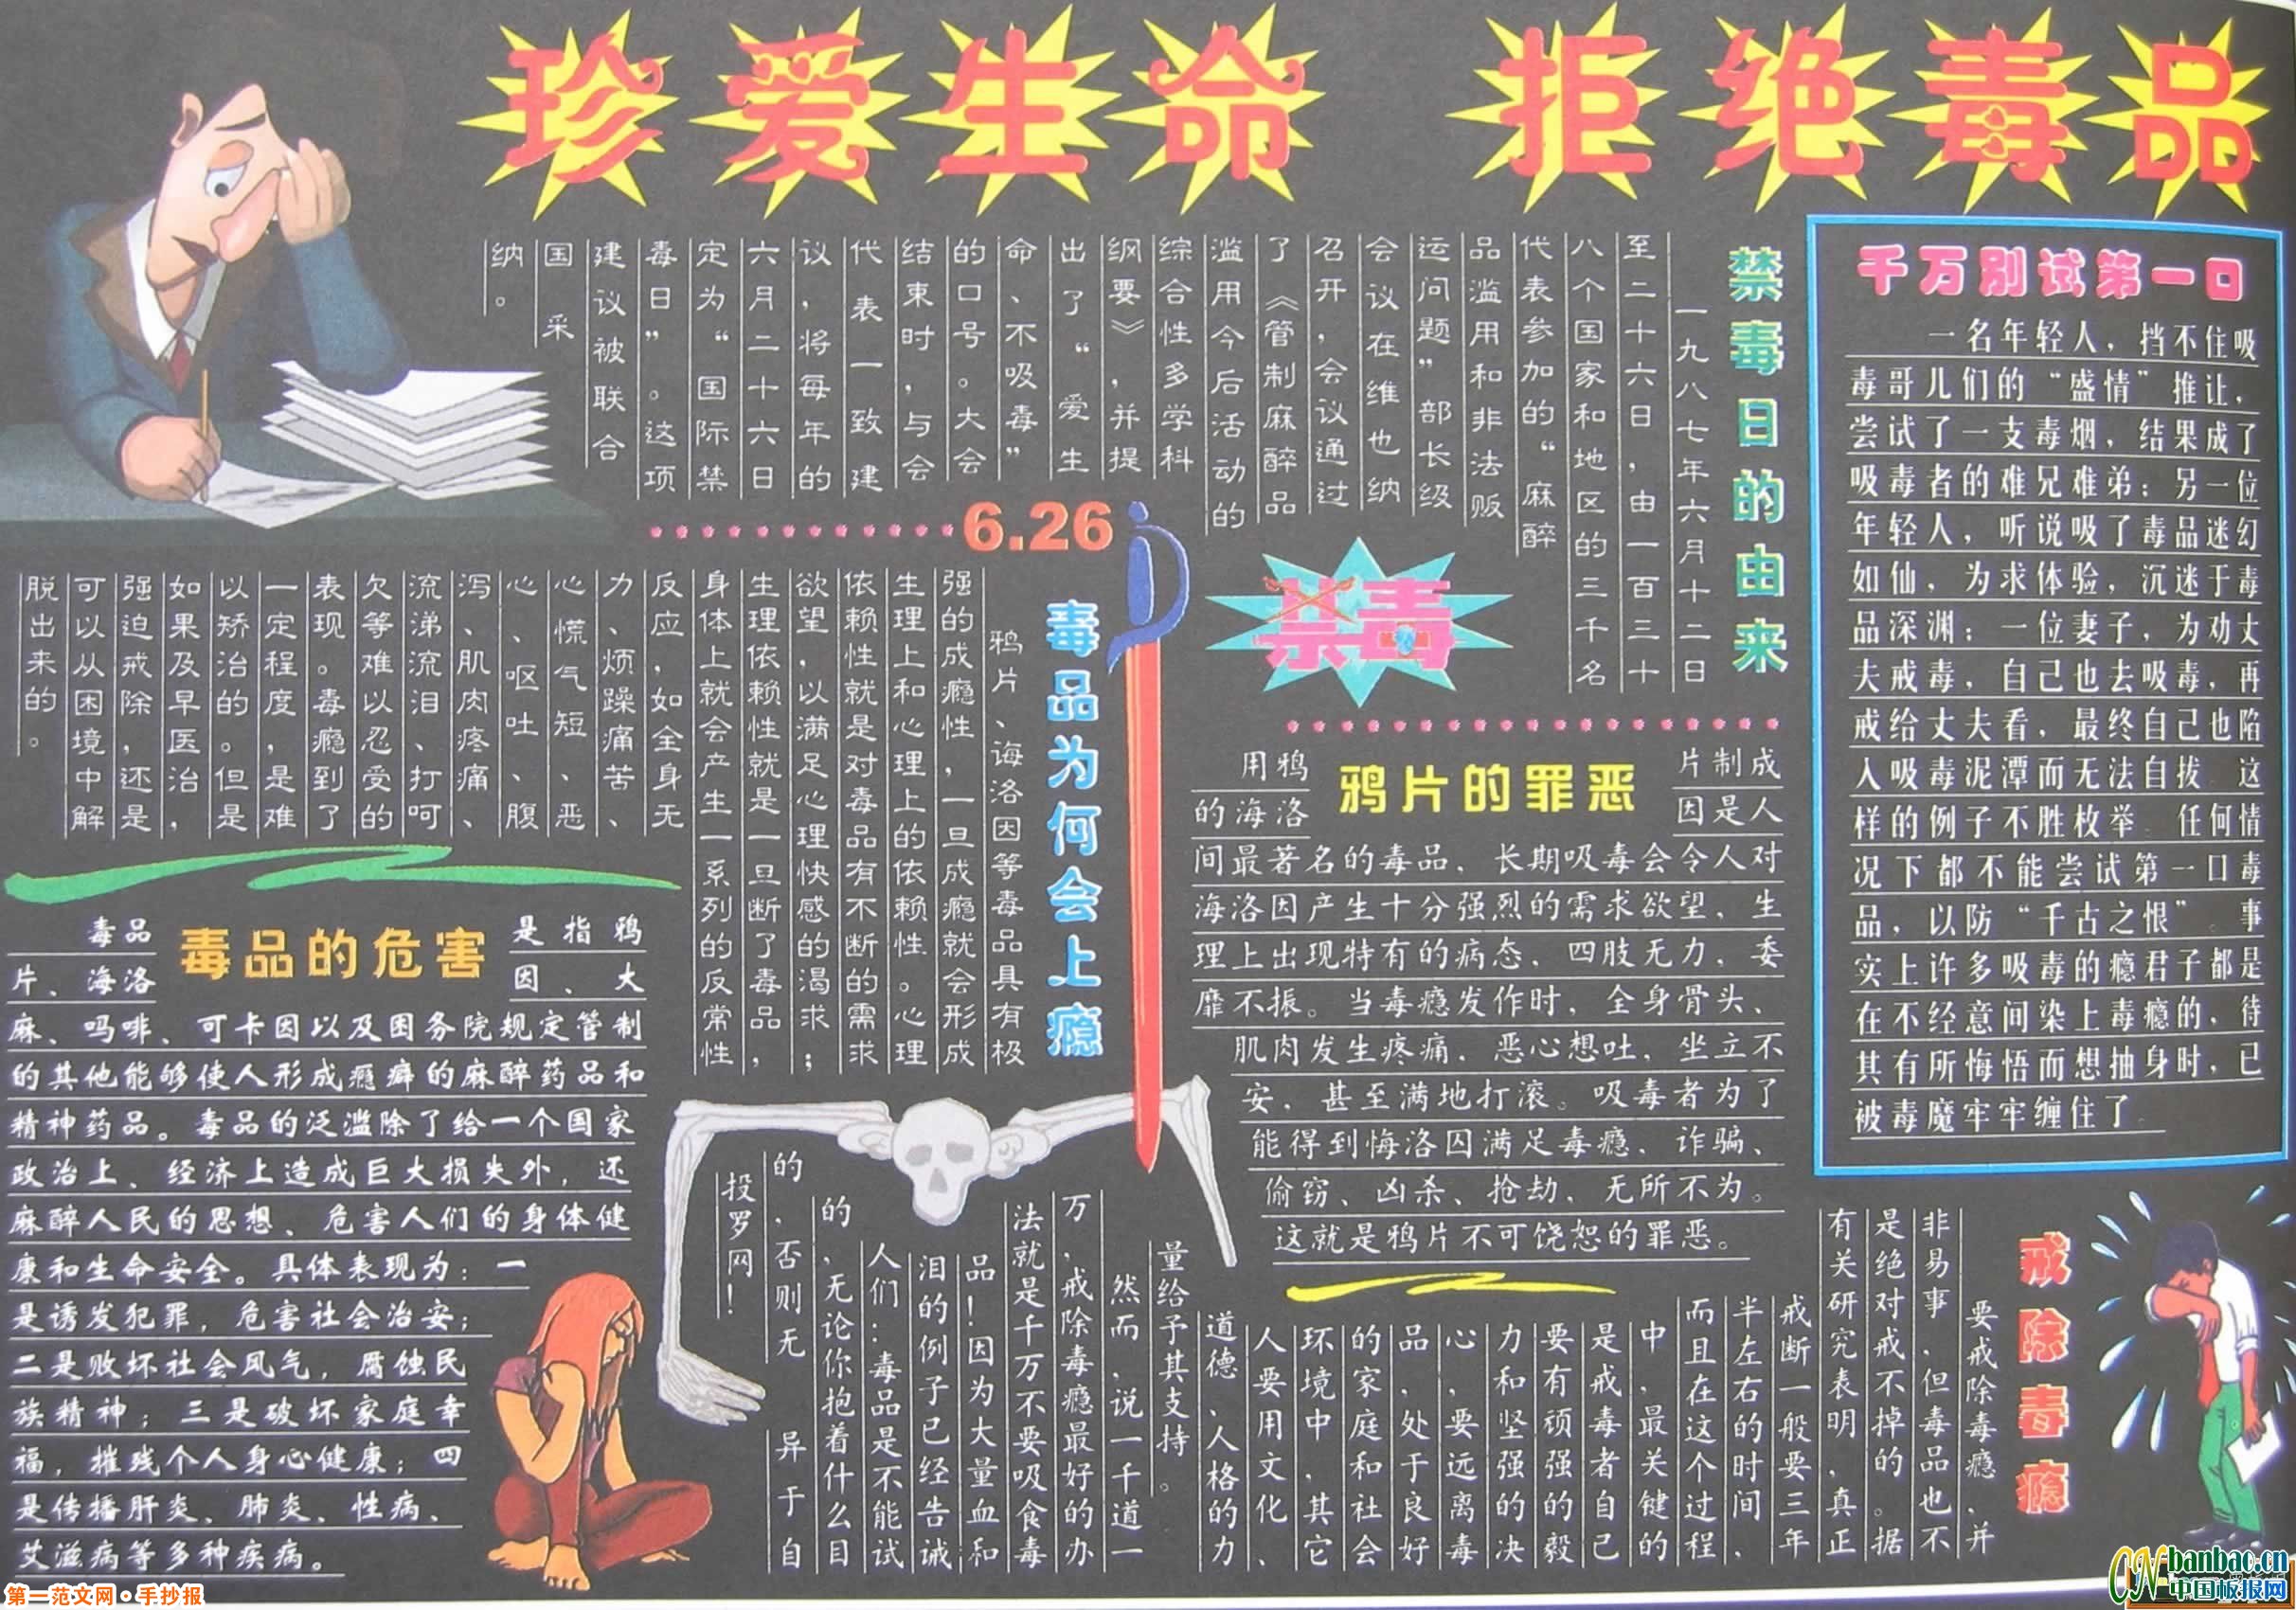 珍爱生命 拒绝毒品
千万别试第一口
一名年轻人，挡不住吸
毒哥儿们的“盛情”推让，
尝试了一支毒烟，结果成了
吸毒者的难兄难弟；另一位
年轻人，听说吸了毒品迷幻
如仙，为求体验，沉迷于毒
品深渊；一位妻子，为劝丈
夫戒毒，自己也去吸毒，再
戒给丈夫看，最终自己也陷
入吸毒泥潭而无法自拔 这
样的例子不胜枚举 任何情
况下都不能尝试第一口毒
品，以防“千古之恨”。事
实上许多吸毒的瘾君子都是
在不经意间染上毒瘾的，待
其有所悔悟而想抽身时，已
被毒魔牢牢缠住了
禁毒日的由来
一九八七年六月十二日
至二十六日，由一百三十
八个国家和地区的三千名
代表参加的“麻醉
品滥用和非法贩
运问题”部长级
会议在维也纳
召开，会议通过
了《管制麻醉品
滥用今后活动的
综合性多学科
纲要》，并提
出了“爱生
命、不吸毒”
的口号。大会
结束时，与会
代表一致建
议，将每年的
六月二十六日
定为“国际禁
毒日”。这项
建议被联合
国采
纳。
6.26
禁毒
毒品为何会上瘾
鸦片、诲洛因等毒品具有极
强的成瘾性，一旦成瘾就会形成
生理上和心理上的依赖性。心理
依赖性就是对毒品有不断的需求
欲望，以满足心理快感的渴求；
生理依赖性就是一旦断了毒品，
身体上就会产生一系列的反常性
反应，如全身无
力、烦躁痛苦、
心慌气短、恶
心、呕吐、腹
泻、肌肉疼痛、
流涕流泪、打呵
欠等难以忍受的
表现。毒瘾到了
一定程度，是难
以矫治的。但是
如果及早医治，
强迫戒除，还是
可以从困境中解
脱出来的。
鸦片的罪恶
用鸦片制成
的海洛因是人
间最著名的毒品，长期吸毒会令人对
海洛因产生十分强烈的需求欲望，生
理上出现特有的病态，四肢无力，委
靡不振。当毒瘾发作时，全身骨头、
肌肉发生疼痛，恶心想吐，坐立不
安，甚至满地打滚。吸毒者为了
能得到悔洛因满足毒瘾，诈骗、
偷窃、凶杀、抢劫，无所不为。
这就是鸦片不可饶恕的罪恶。
毒品的危害
毒品是指鸦
片、海洛因、大
麻、吗啡、可卡因以及国务院规定管制
的其他能够使人形成瘾癖的麻醉药品和
精神药品。毒品的泛滥除了给一个国家
政治上、经济上造成巨大损失外，还
麻醉人民的思想、危害人们的身体健
康和生命安全。具体表现为：一
是诱发犯罪，危害社会治安；
二是败坏社会风气，腐蚀民
族精神；三是破坏家庭幸
福，摧残个人身心健康；四
是传播肝炎、肺炎、性病、
艾滋病等多种疾病。
戒除毒瘾
要戒除毒瘾，并
非易事，但毒品也不
是绝对戒不掉的。据
有关研究表明，真正
戒断一般要三年
半左右的时间，
而且在这个过程
中，最关键的
是戒毒者自己
要有顽强的毅
力和坚强的决
心，要远离毒
品，处于良好
的家庭和社会
环境中，其它
人要用文化、
道德、人格的力
量给予其支持。
然而，说一千道一
万，戒除毒瘾最好的办
法就是千万不要吸食毒
品！因为大量血和
泪的例子已经告诫
人们：毒品是不能试
的，无论你抱着什么目
的，否则无异于自
投罗网！
第一范文网·手抄报
CN banbao.cn
中国板报网